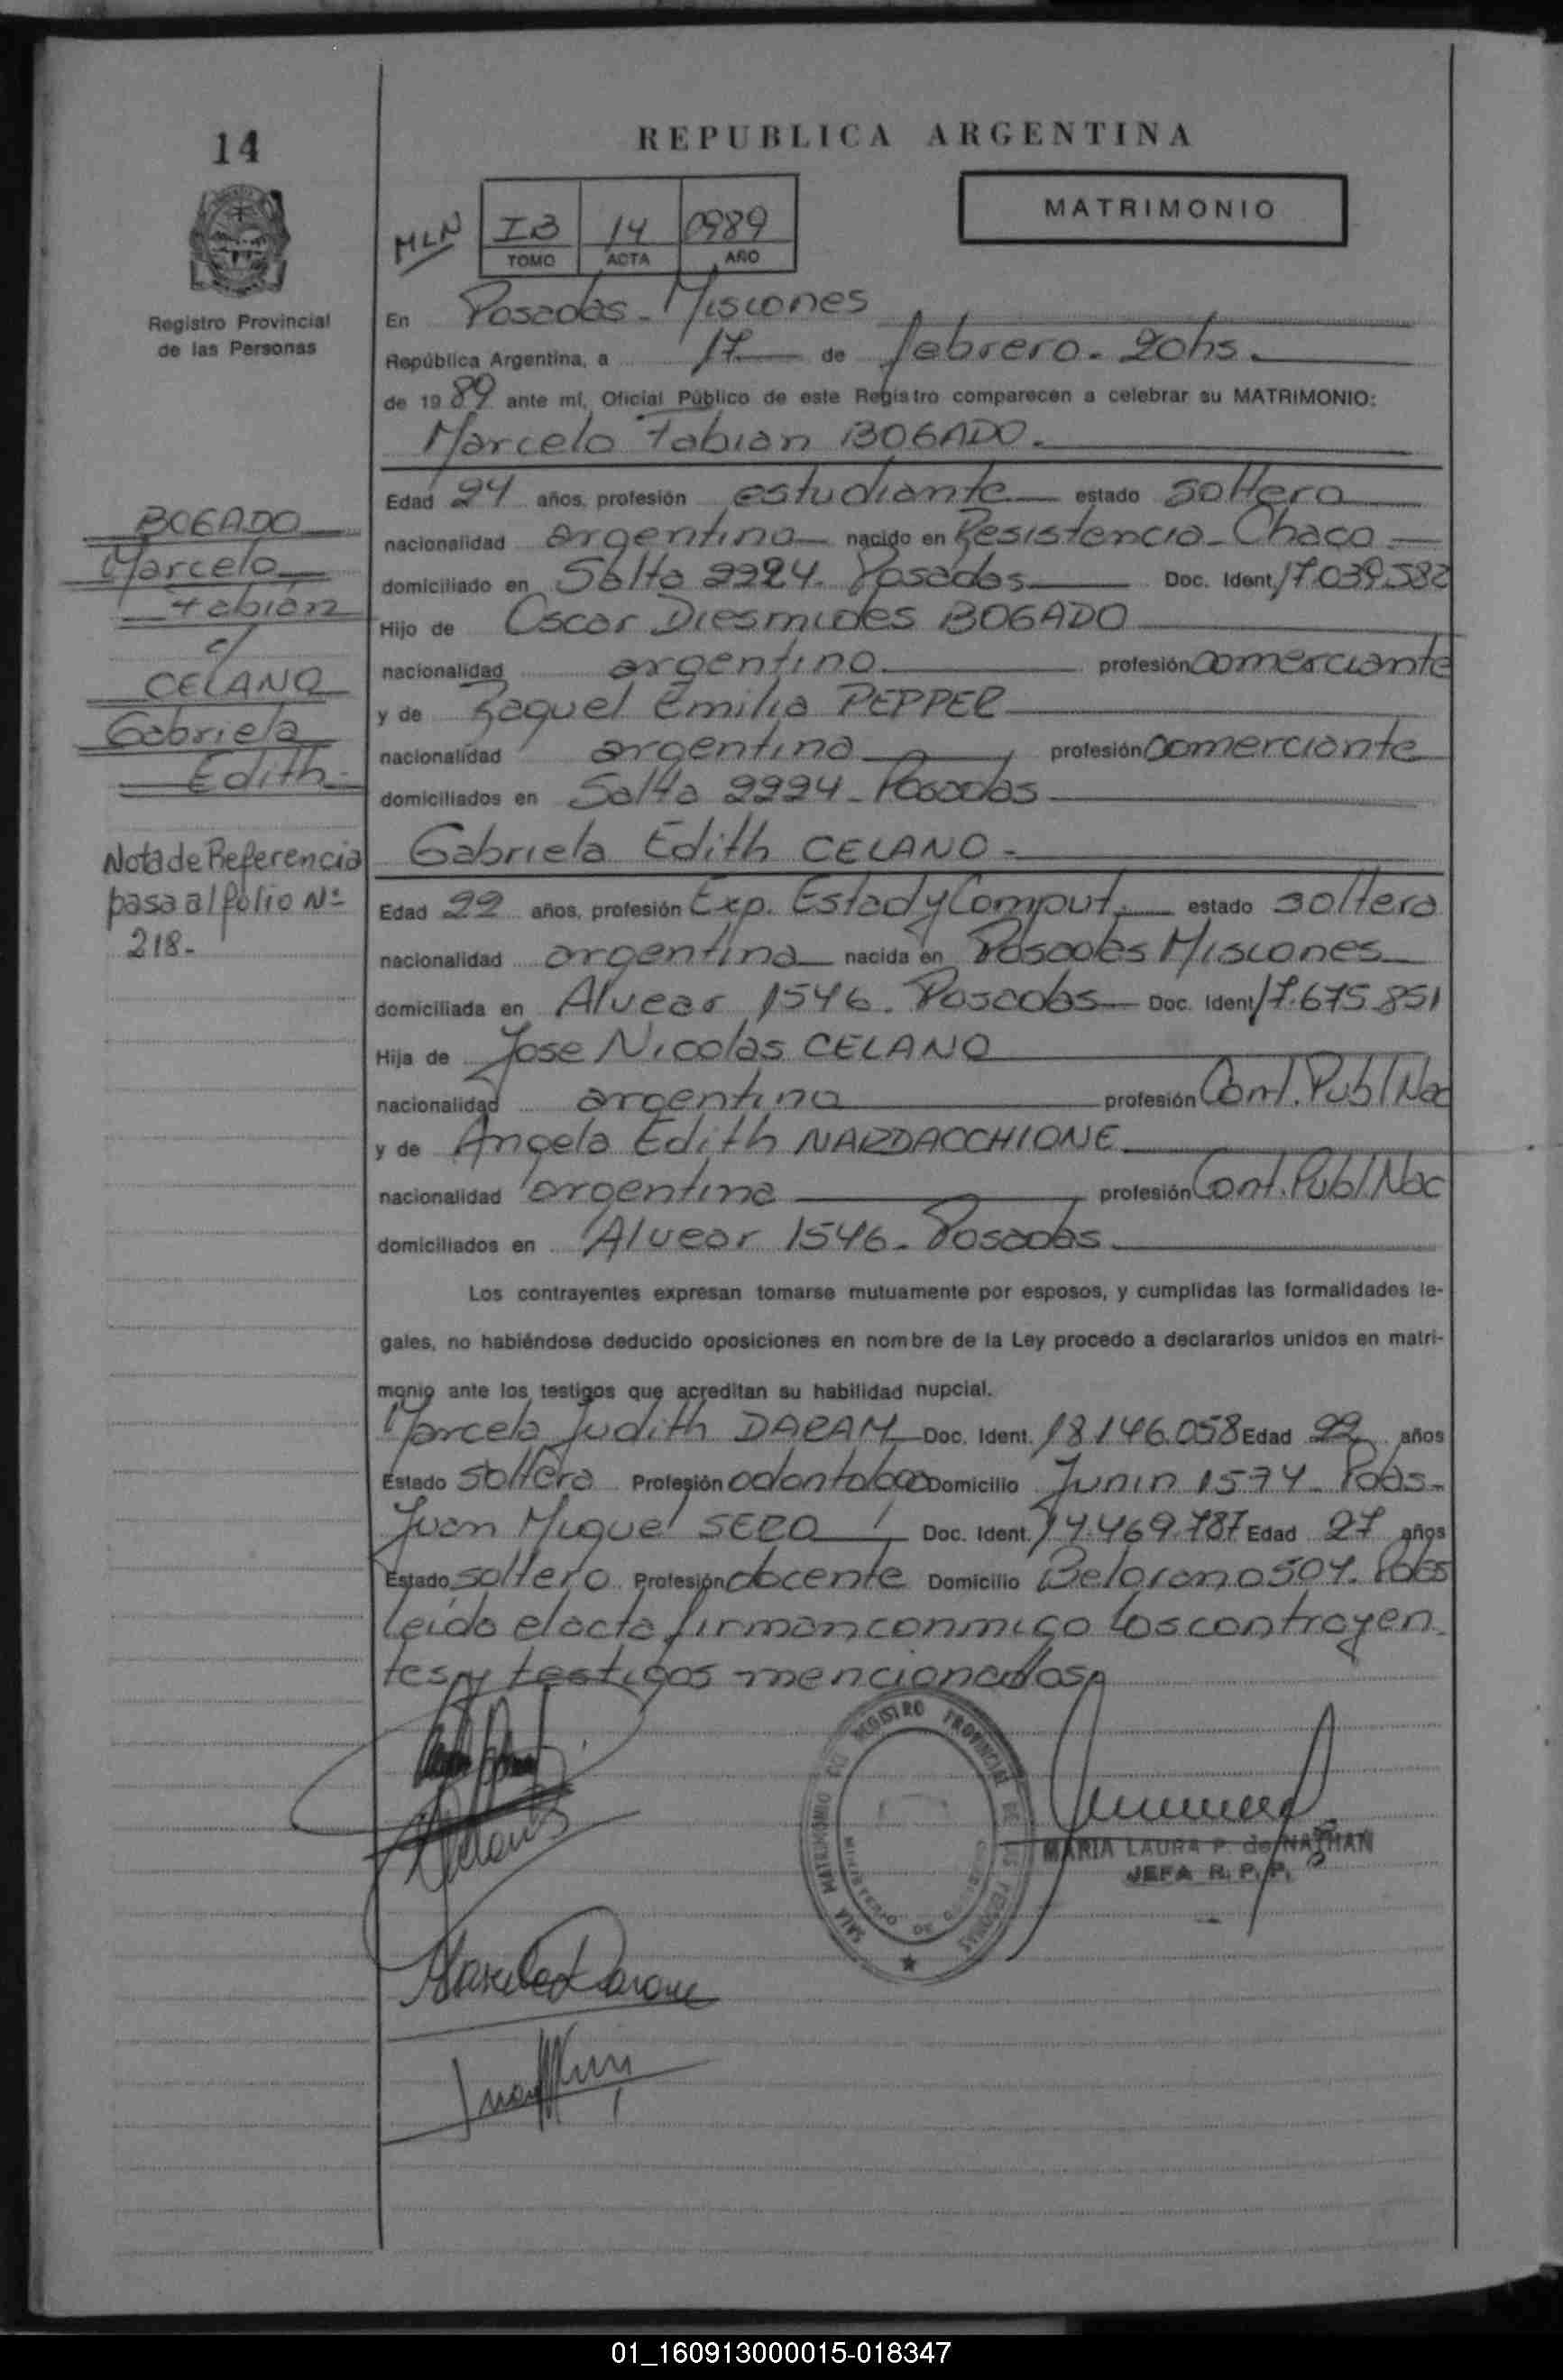 14
REPUBLICA ARGENTINA
MATRIMONIO
MLN
IB 14 0989
TOMO ACTA AÑO
Registro Provincial
de las Personas
En Posadas - Misiones
República Argentina, a 17 de febrero - 20hs.
de 1989 ante mí, Oficial Público de este Registro comparecen a celebrar su MATRIMONIO:
Marcelo Fabian BOGADO.
Edad 24 años, profesión estudiante estado soltero
nacionalidad argentina nacido en Resistencia - Chaco
domiciliado en Salta 2224. Posadas Doc. Ident. 17.039.582
Hijo de Oscar Diesmides BOGADO
nacionalidad argentino profesión comerciante
y de Raquel Emilia PEPPER
nacionalidad argentina profesión comerciante
domiciliados en Salta 2224 - Posadas
Gabriela Edith CELANO -
BOGADO
Marcelo
Fabián
c/
CELANO
Gabriela
Edith -
Nota de Referencia
pasa al folio Nº
218-
Edad 22 años, profesión Exp. Estad y Comput. estado soltera
nacionalidad argentina nacida en Posadas Misiones
domiciliada en Alvear 1546. Posadas Doc. Ident. 17.675.851
Hija de Jose Nicolas CELANO
nacionalidad argentino profesión Cont. Publ Nac
y de Angela Edith NARDACCHIONE
nacionalidad argentina profesión Cont. Publ Nac
domiciliados en Alvear 1546 - Posadas
Los contrayentes expresan tomarse mutuamente por esposos, y cumplidas las formalidades le-
gales, no habiéndose deducido oposiciones en nombre de la Ley procedo a declararlos unidos en matri-
monio ante los testigos que acreditan su habilidad nupcial.
Marcela Judith DARAM Doc. Ident. 18.146.058 Edad 22 años
Estado soltera Profesión odontologa Domicilio Junin 1574 - Pdas -
Juan Miguel SERO Doc. Ident. 14.469.787 Edad 27 años
Estado soltero Profesión docente Domicilio Belgrano 504. Pdas
Leido el acta firman conmigo los contrayen
tes y testigos mencionados
REGISTRO PROVINCIAL DE LAS PERSONAS
SALA MATRIMONIO
MINISTERIO DE GOBIERNO
MARIA LAURA P. de NATHAN
JEFA R. P. P.
01_160913000015-018347